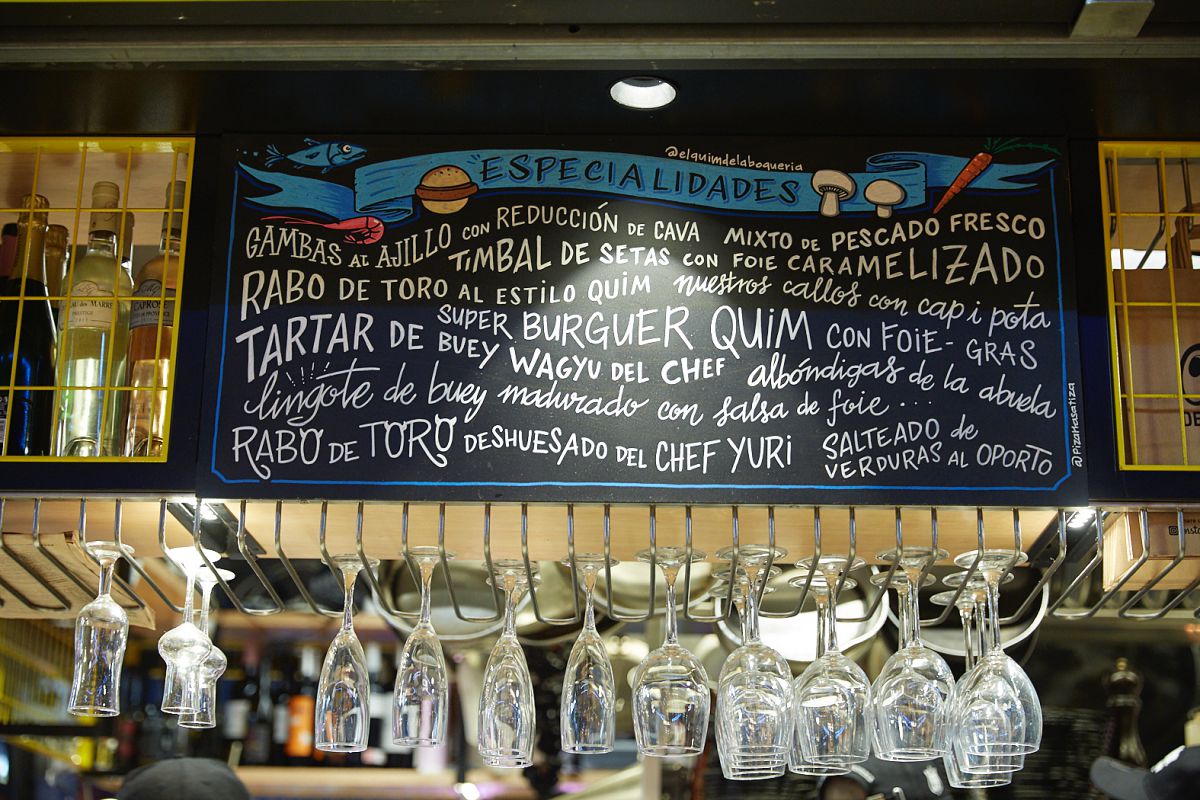 @elquimdelaboqueria
ESPECIALIDADES
GAMBAS AL AJILLO CON REDUCCIÓN DE CAVA MIXTO DE PESCADO FRESCO
TIMBAL DE SETAS CON FOIE CARAMELIZADO
RABO DE TORO AL ESTILO QUIM nuestros callos con cap i pota
SUPER BURGUER QUIM CON FOIE-GRAS
TARTAR DE BUEY WAGYU DEL CHEF albóndigas de la abuela
lingote de buey madurado con salsa de foie...
RABO DE TORO DESHUESADO DEL CHEF YURI SALTEADO de
VERDURAS AL OPORTO
@PizaMasatiza